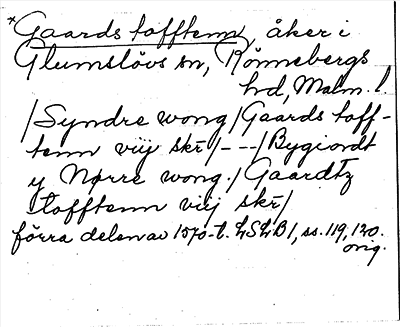 *Gaards tofftenn, åker i
Glumslövs sn, Rönnebergs
hd, Malm. l.
/Syndre wong/Gaards toff-
tenn viij skr/---/Bygiordt
y Nørre wong./Gaardtz
tofftenn viij skr/
förra delen av 1570-t. LSLB1, ss. 119, 120.
orig.